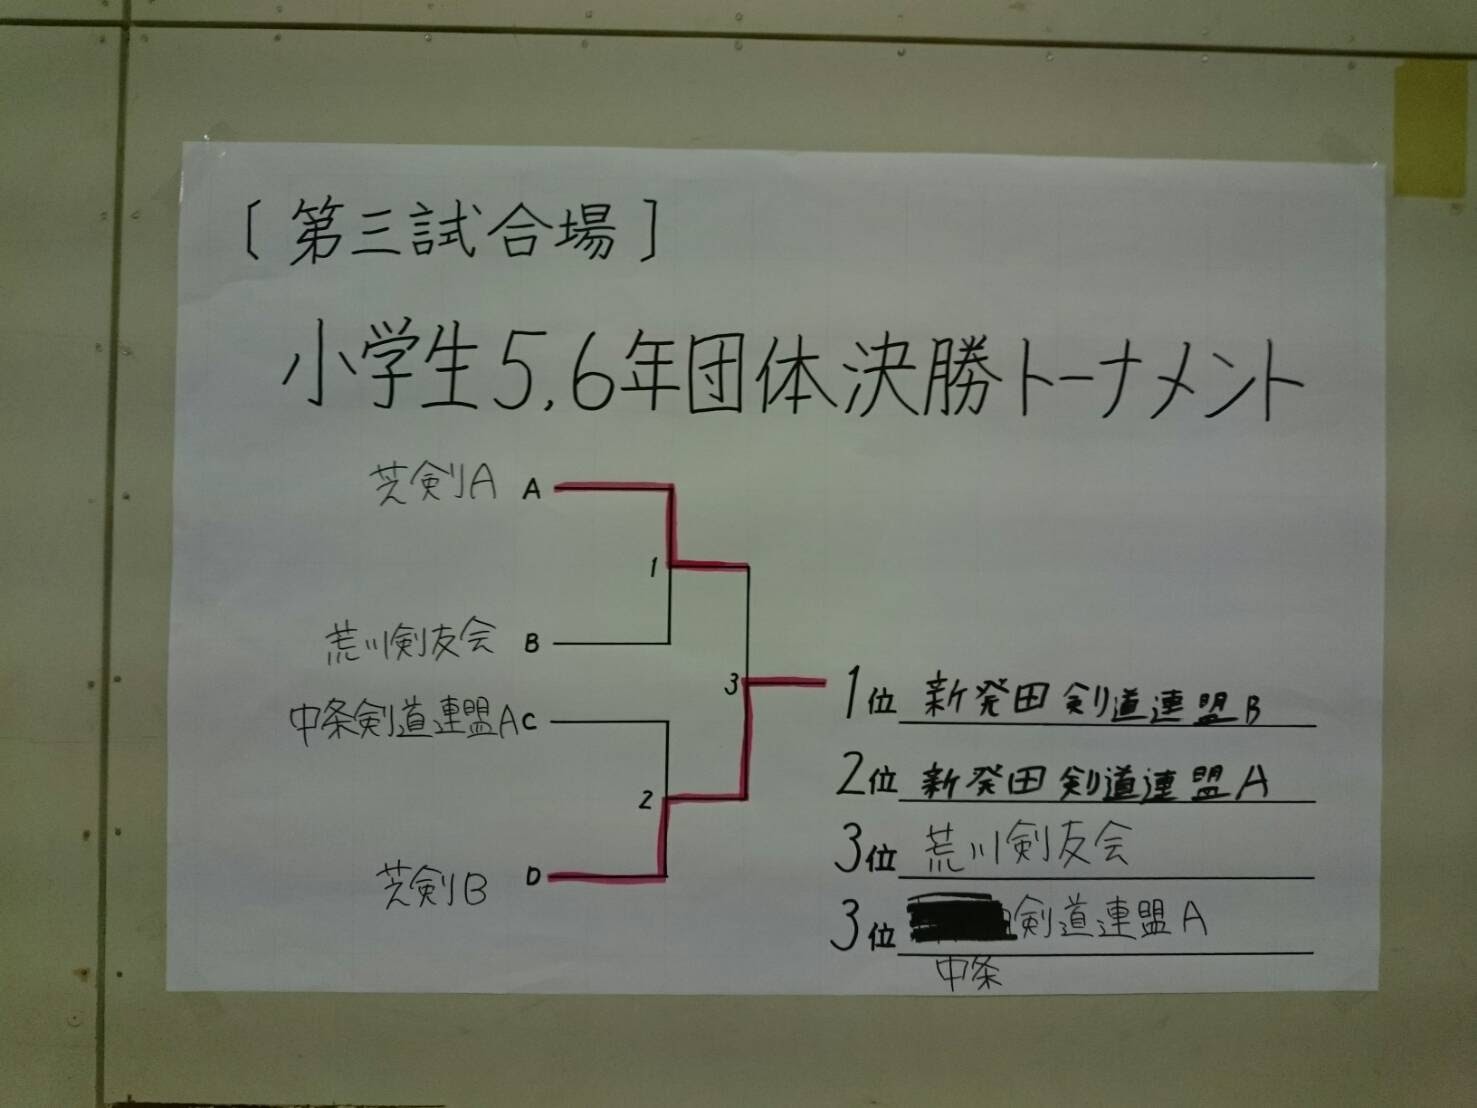 〔第三試合場〕
小学生5,6年団体決勝トーナメント
芝剣A A
1
荒川剣友会 B
3
中条剣道連盟A C
2
芝剣B D
1位 新発田剣道連盟B
2位 新発田剣道連盟A
3位 荒川剣友会
3位 剣道連盟A
中条